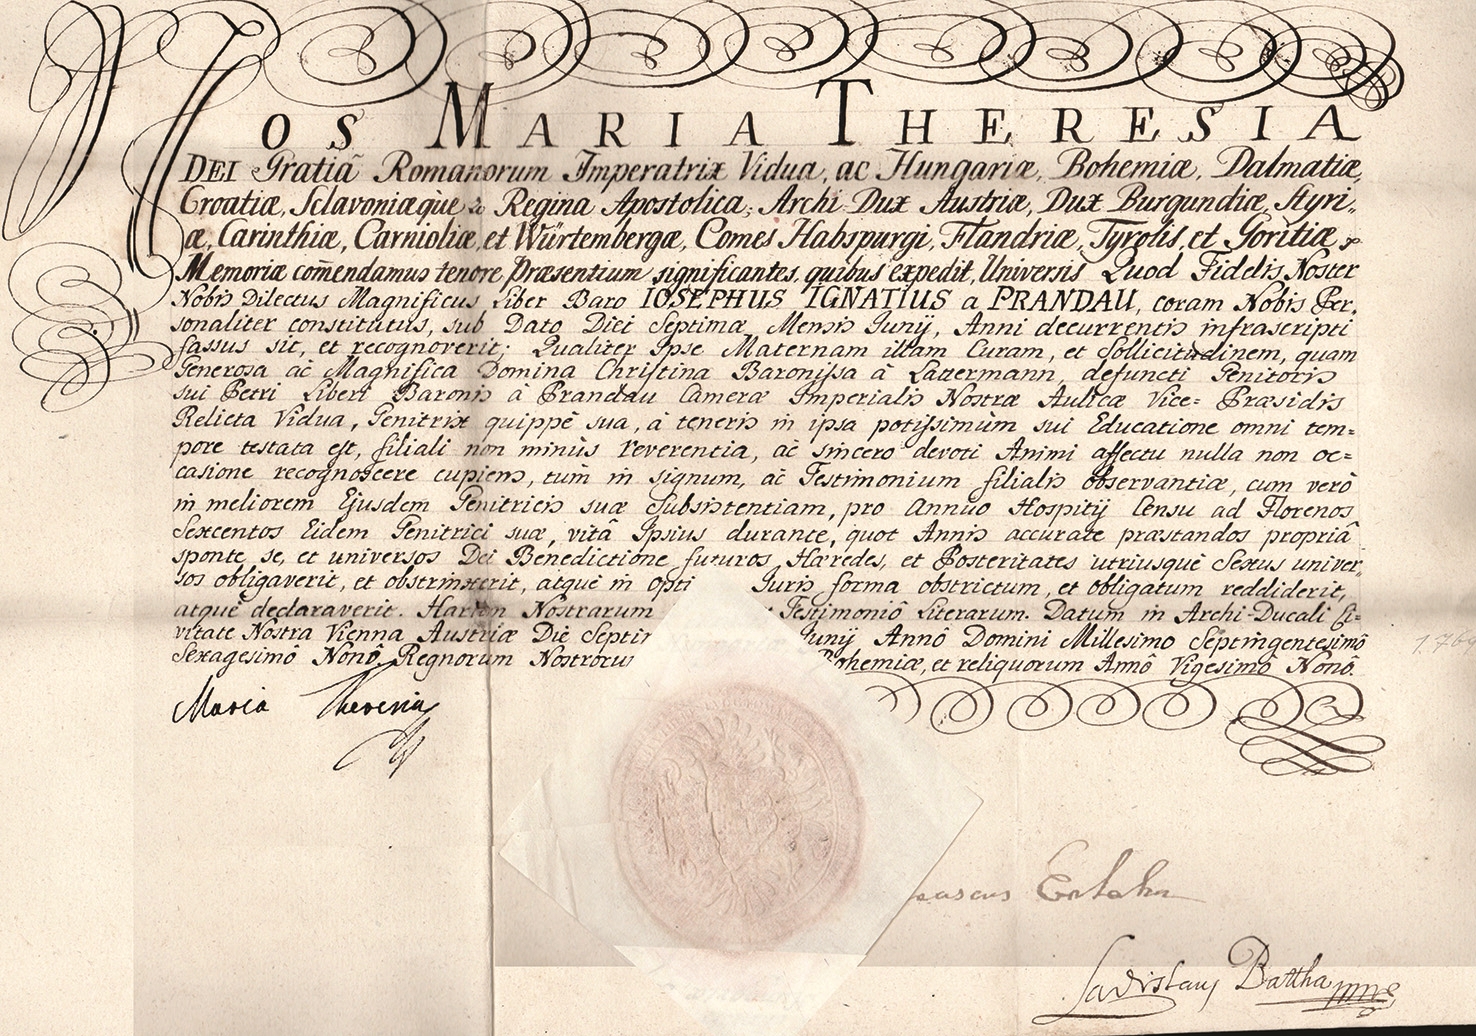 NOS MARIA THERESIA
DEI Gratiâ Romanorum Imperatrix Vidua, ac Hungariæ, Bohemiæ, Dalmatiæ,
Croatiæ, Sclavoniæquè Regina Apostolica, Archi-Dux Austriæ, Dux Burgundiæ, Styri„
æ, Carinthiæ, Carnioliæ, et Würtembergæ, Comes Habspurgi, Flandriæ, Tyrolis, et Goritiæ,
Memoriæ com̃endamus tenore Præsentium significantes, quibus expedit, Universis. Quod Fidelis Noster
Nobis Dilectus Magnificus Liber Baro IOSEPHUS IGNATIUS a PRANDAU, coram Nobis Per„
sonaliter constitutus, sub Dato Diei Septimæ Mensis Junÿ, Anni decurrentis infrascripti
fassus sit, et recognoverit; Qualiter Ipse Maternam illam Curam, et Sollicitudinem, quam
Generosa ac Magnifica Domina Christina Baronissa à Lattermann, defuncti Genitoris
sui Petri Liberi Baronis à Prandau Cameræ Imperialis Nostræ Aulicæ Vice= Præsidis
Relicta Vidua, Genitrix quippè sua, à teneris in ipsa potissimùm sui Educatione omni tem=
pore testata est, filiali non minùs reverentia, ac sincero devoti Animi affectu nulla non oc=
casione recognoscere cupiens, tùm in signum, ac Testimonium filialis observantiæ, cum verò
in meliorem Ejusdem Genitricis suæ Subsistentiam, pro Annuo Hospitÿ Censu ad Florenos
Sexcentos Eidem Genitrici suæ, vitâ Ipsius durante, quot Annis accurate præstandos propriâ
sponte, se, et universos Dei Benedictione futuros Hæredes, et Posteritates utriusquè Sexus univer„
sos obligaverit, et obstrinxerit, atquè in opti Juris forma obstrictum, et obligatum reddiderit,
atquè declaraverit. Harum Nostrarum Testimoniô Literarum. Datum in Archi-Ducali Ci=
vitate Nostra Vienna Austriæ Die Septim Junÿ Annô Domini Millesimo Septingentesimô
Sexagesimô Nonô, Regnorum Nostrorum Bohemiæ, et reliquorum Annô Vigesimô Nonô.
1769
Maria Theresia
Ladislaus